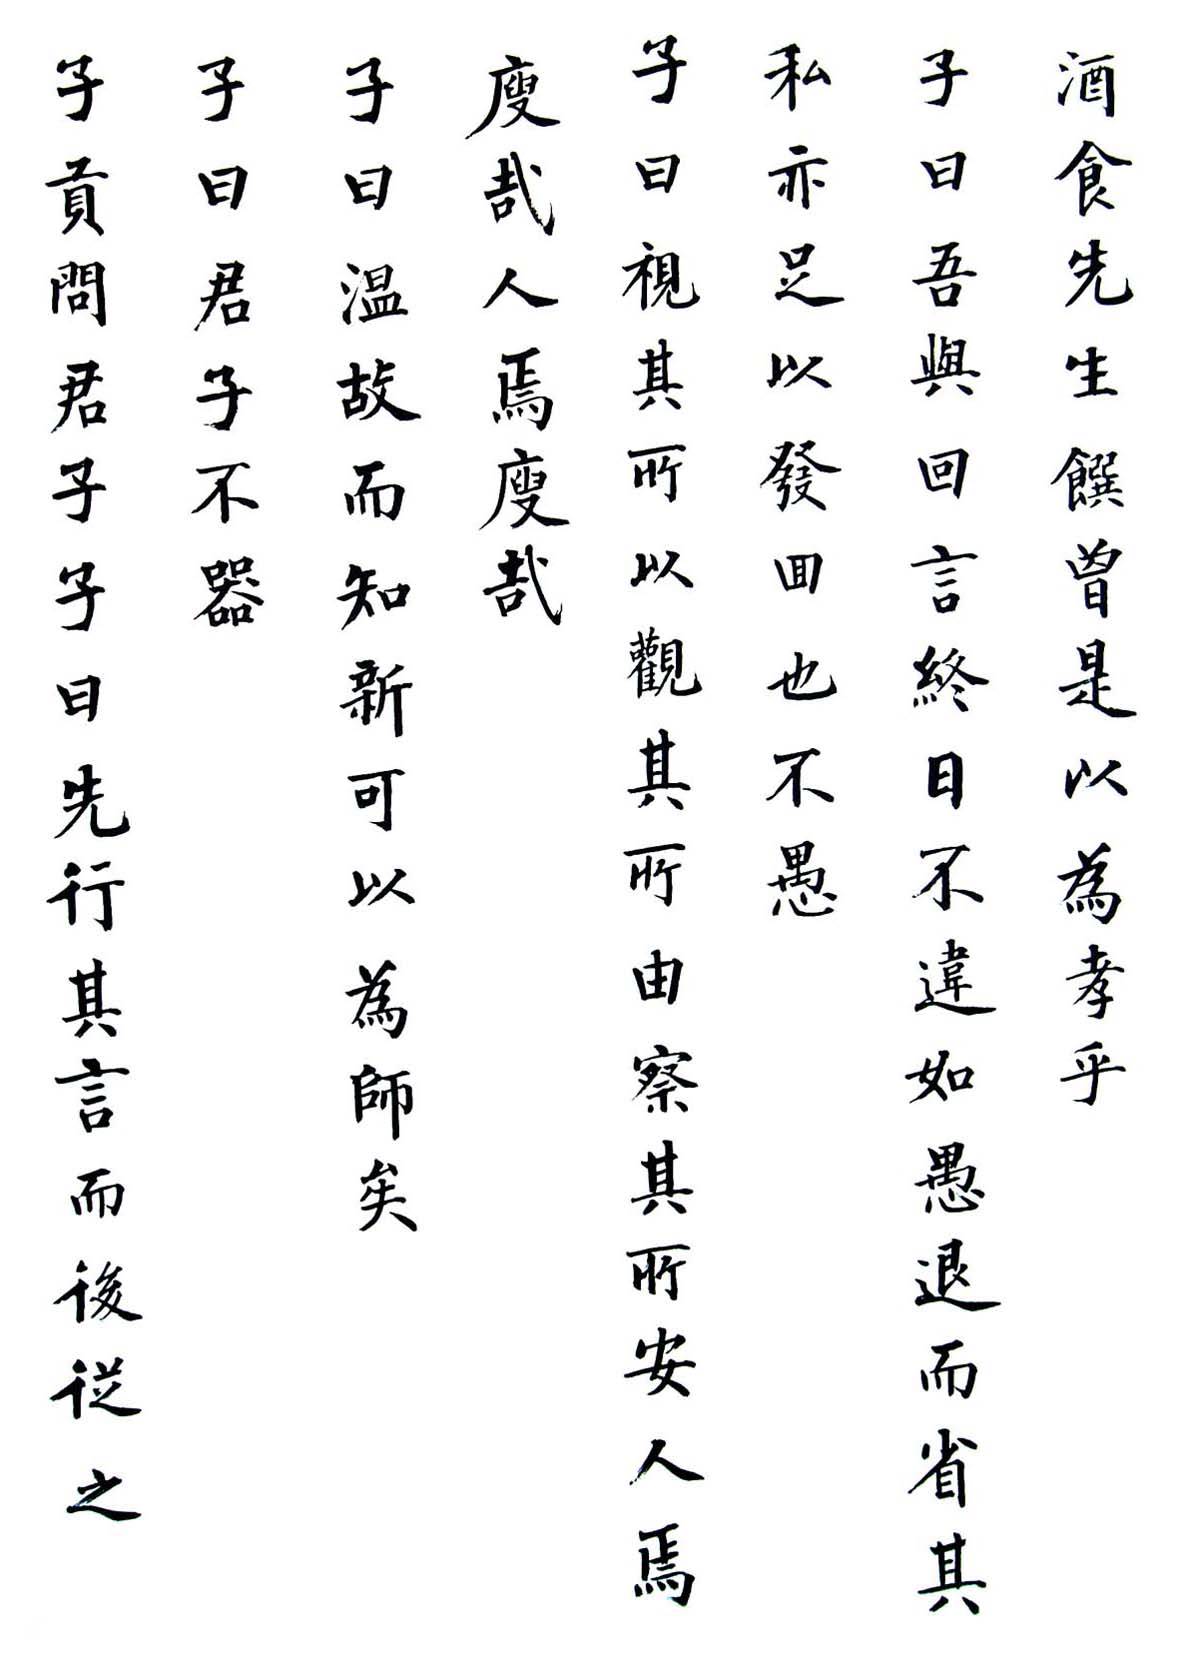 酒食先生饌曾是以為孝乎
子曰吾與回言終日不違如愚退而省其
私亦足以發回也不愚
子曰視其所以觀其所由察其所安人焉
廋哉人焉廋哉
子曰温故而知新可以為師矣
子曰君子不器
子貢問君子子曰先行其言而後從之